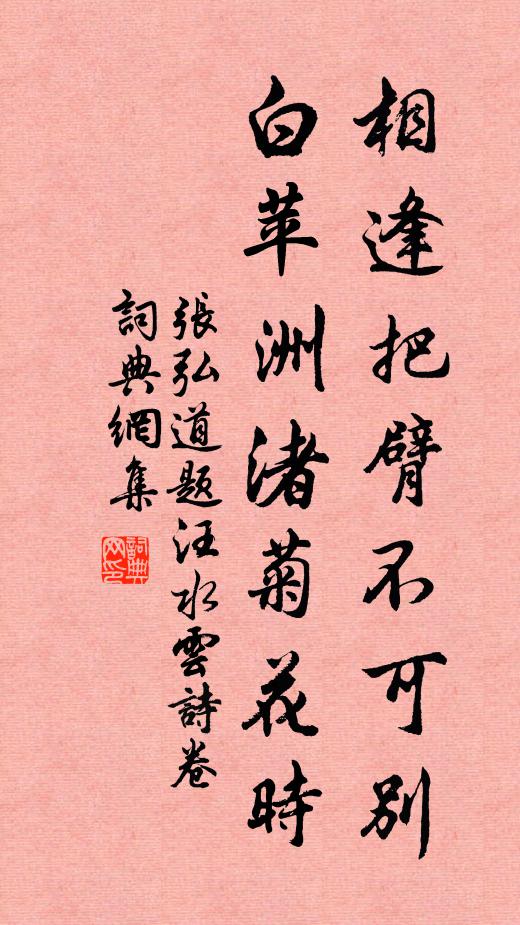 相逢把臂不可別
白苹洲渚菊花時
張弘道题汪水雲詩卷
詞典網集
詞典网印